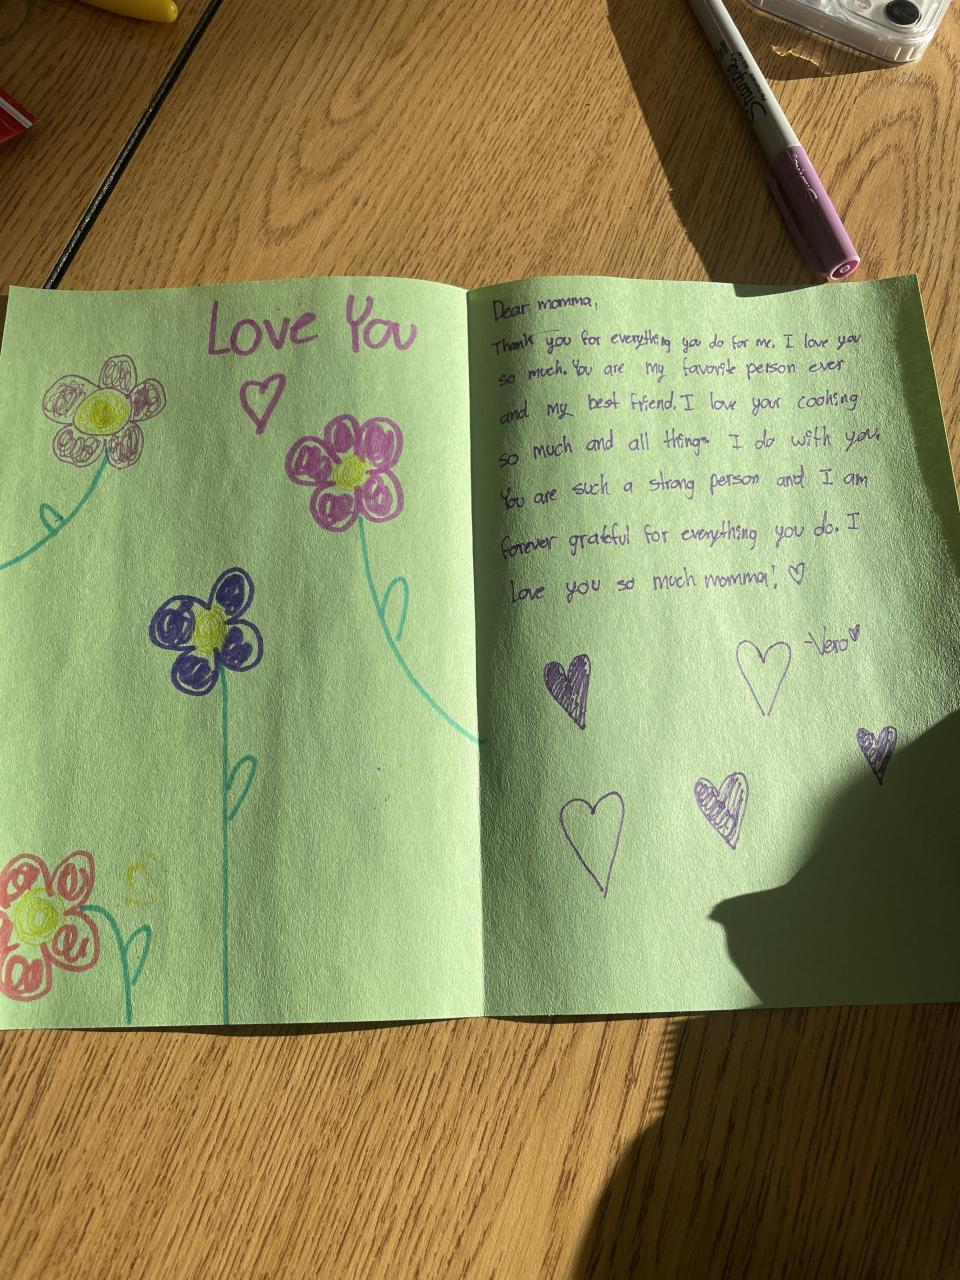 Love You
Dear momma,
Thank you for everything you do for me. I love you
so much. You are my favorite person ever
and my best friend. I love your cooking
so much and all things I do with you.
You are such a strong person and I am
forever grateful for everything you do. I
love you so much momma! ♡
-Vero♥
Sharpie